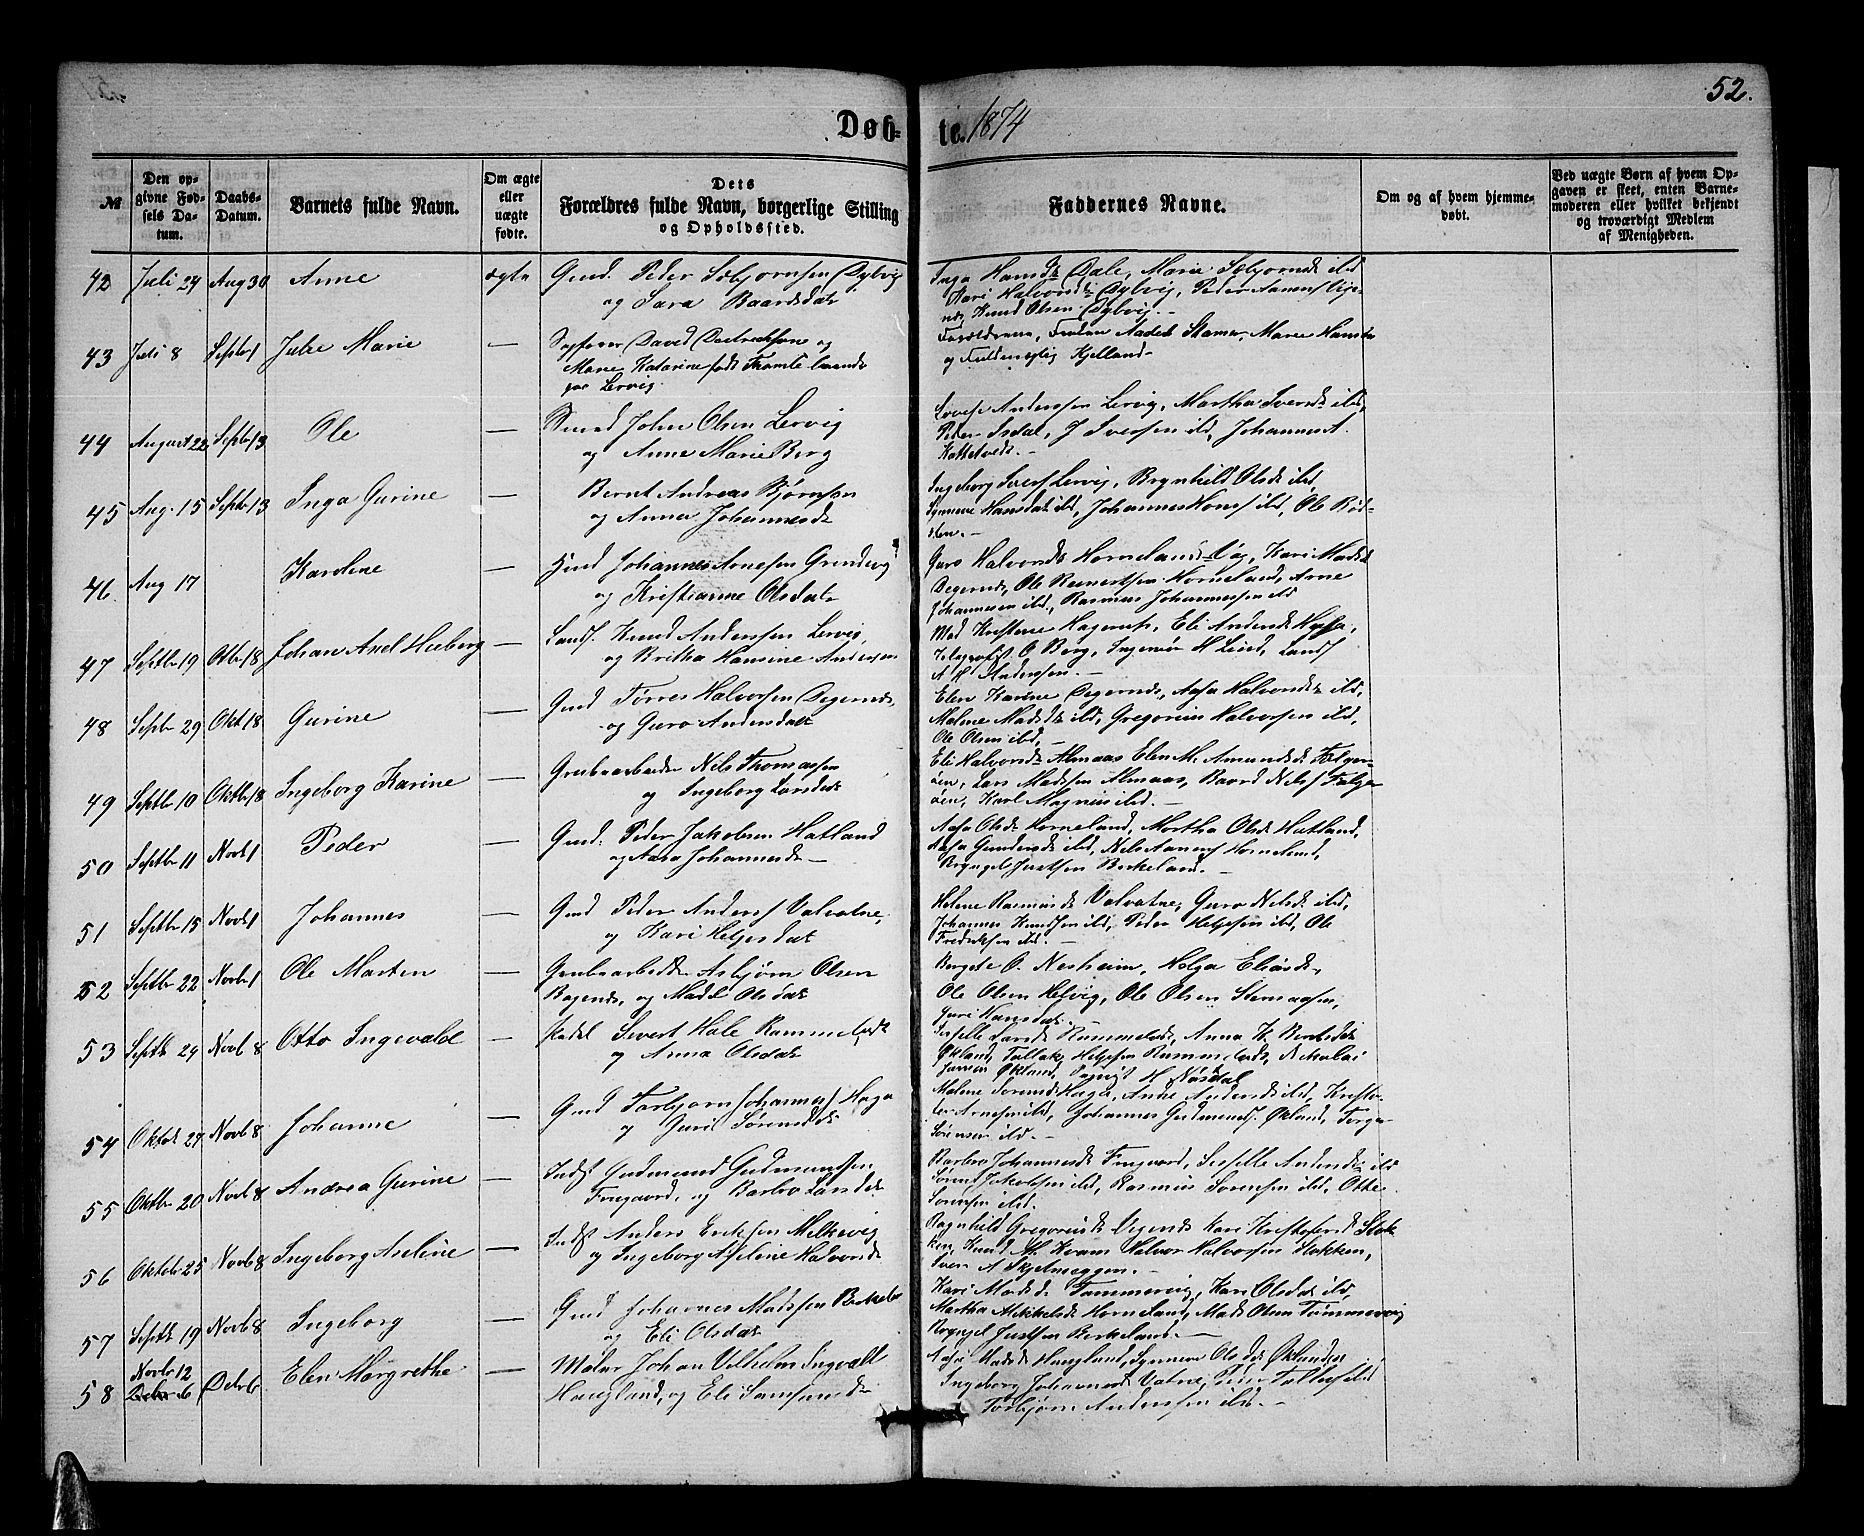 52.
Døb- te. 1874
№
Den op-
givne Fød-
sels Da-
tum.
Daabs-
Datum.
Barnets fulde Navn.
Om ægte
eller
uægte
fødte.
Dets
Forældres fulde Navn, borgerlige Stilling
og Opholdssted.
Faddernes Navne.
Om og af hvem hjemme-
døbt.
Ved uægte Børn af hvem Op-
gaven er skeet, enten Barne-
moderen eller hvilket bekjendt
og troværdigt Medlem
af Menigheden.
42 Juli 29 Aug 30 Anne ægte Gmd. Peder Sæbjørnsen Dylvig
og Sara Baardsdatr
Inga Hansdtr Dale, Marie Sæbjørnsdtr ibd
Kari Halvorsdtr Dylvig, Peder Aamens
Knud Olsen Dylvig.-
43 Juli 8 Septbr 1 Julie Marie — Sagfører David og
Marie Katarine født
Lervig.
Forældrene, Frøken Stamer, Marie Hansen
og Fuldmægtig Kjelland-
44 August 22 Septbr 13 Ole — Smed John Olsen Lervig
og Anne Marie Berg
Andersen Lervig, Martha Iversdtr ibd,
Peder Isdal, J Iversen ibd, Johannes A.
Kattetvedt.-
45 Aug. 15 Septbr 13 Inga Gurine — Bernt Andreas Bjørnsen
og Anna Johannesdtr
Ingeborg Lervig, Brynhild Olsdtr ibd,
Synneve Hansdatr ibd, Johannes Hans ibd, Ole
46 Aug 17 Karoline — Gmd Johannes Arnesen Grindevig
og Kristianne Olsdatr
Guro Halvorsdtr Horneland, Kari Madsdtr
Degernes, Ole Reinertsen Horneland, Arne
Johannesen ibd., Rasmus Johannessen ibd
47 Septbr 19 Otbr 18 Johan Axel Heiberg — Landh. Knud Andersen Lervig,
og Britha Hansine Andersen
Mad Kristine Hagerup, Eli Andersdtr
Telegrafist O Berg, Ingeniør H Lund, Landh
A H Andersen.-
48 Septbr 29 Okt 18 Gurine — Gmd Tørres Halvorsen Degernes,
og Guro Andersdatr
Elen Karine Degernes, Aasa Halvorsdtr ibd,
Malene Madsdtr ibd, Gregorius Halvorsen ibd,
Ole Olsen ibd,-
49 Septbr 10 Oktbr 18 Ingeborg Karine — Grubearbeider Nils Thomassen
og Ingeborg Larsdatr
Eli Halvorsdtr Almaas Elen M. Amundsdtr Følger-
øen, Lars Madsen Almaas, Baard Nils Følger-
øen, Karl Magnus ibd.-
50 Septbr 11 Novbr 1 Peder — Gmd. Peder Jakobsen Hatland
og Aasa Johannesdtr —
Aasa Olsdtr Horneland, Martha Olsdtr Hatland,
Aasa Gundersdtr ibd, Nils Horneland,
Justsen Birkeland.-
51 Septbr 15 Novbr 1 Johannes — Gmd Peder Anders Valvatne,
og Kari Helgesdatr
Helene Rasmusdtr Valvatne, Guro Nilsdtr ibd,
Johannes Knudsen ibd, Peder Helgesen ibd, Ole
Fredriksen ibd.-
52 Septbr 22 Novbr 1 Ole Marten — Grubearbeider Asbjørn Olsen
og Madel Olsdatr
Bergete O. Nesheim, Helga Eliasdtr,
Ole Olsen Helvig, Ole Olsen
Guri Hansdatr.-
53 Septbr 29 Novbr 8 Otto Ingevald — Sivert Hole Rommetvedt
og Anna Olsdatr
Sisselle Larsdtr Rommetvedt, Anna K Berntsdtr
Økland, Tollak Helgesen Rommetvedt, Nikolai
Jansen Økland, H Nøsdal
54 Oktbr 29 Novbr 8 Johanne — Gmd Torbjørn Johannes Haga
og Guri Sørensdtr
Malene Sørensdtr Haga, Anne Andersdtr ibd, Kristo-
fer Arnesen ibd, Johannes Gudmunds Økland, Torger
Sørensen ibd.-
55 Oktbr 20 Novbr 8 Andrea Gurine — Indst Gudmund Gudmundsen
Frugaard, og Barbro Larsdtr
Barbro Johannesdtr Frugaard, Sisselle Andersdtr ibd
Søren Jakobsen ibd, Rasmus Sørensen ibd, Otto
Sørensen ibd.
56 Oktbr 25 Novbr 8 Ingeborg Aseline — Indst Anders Eriksen Melkevig
og Ingeborg Aseline Halvorsdtr
Ragnhild Gregoriusdtr Kari Kristofersdtr Stok-
ken, Knud M. Kvam Halvor Halvorsen Stokken,
Sven A Skjelnæggen.-
57 Septbr 19 Novbr 8 Ingeborg — Gmd Johannes Madssen Birkeland
og Eli Olsdatr
Kari Madsdtr Tømmervig, Kari Olsdatr ibd,
Martha Mikkelsdtr Horneland, Mads Olsen Tømmervig
Justsen Birkeland.-
58 Novbr 12 Debr 6 Debr 6 Elen Margrethe — Maler Johan Vilhelm Ingvall
Haugland, og Eli Samsonsdtr
Madsdtr Haugland, Synneva Olsdtr Økland
Ingeborg Johannesdtr Vatne,
Torbjørn Andersen ibd.-